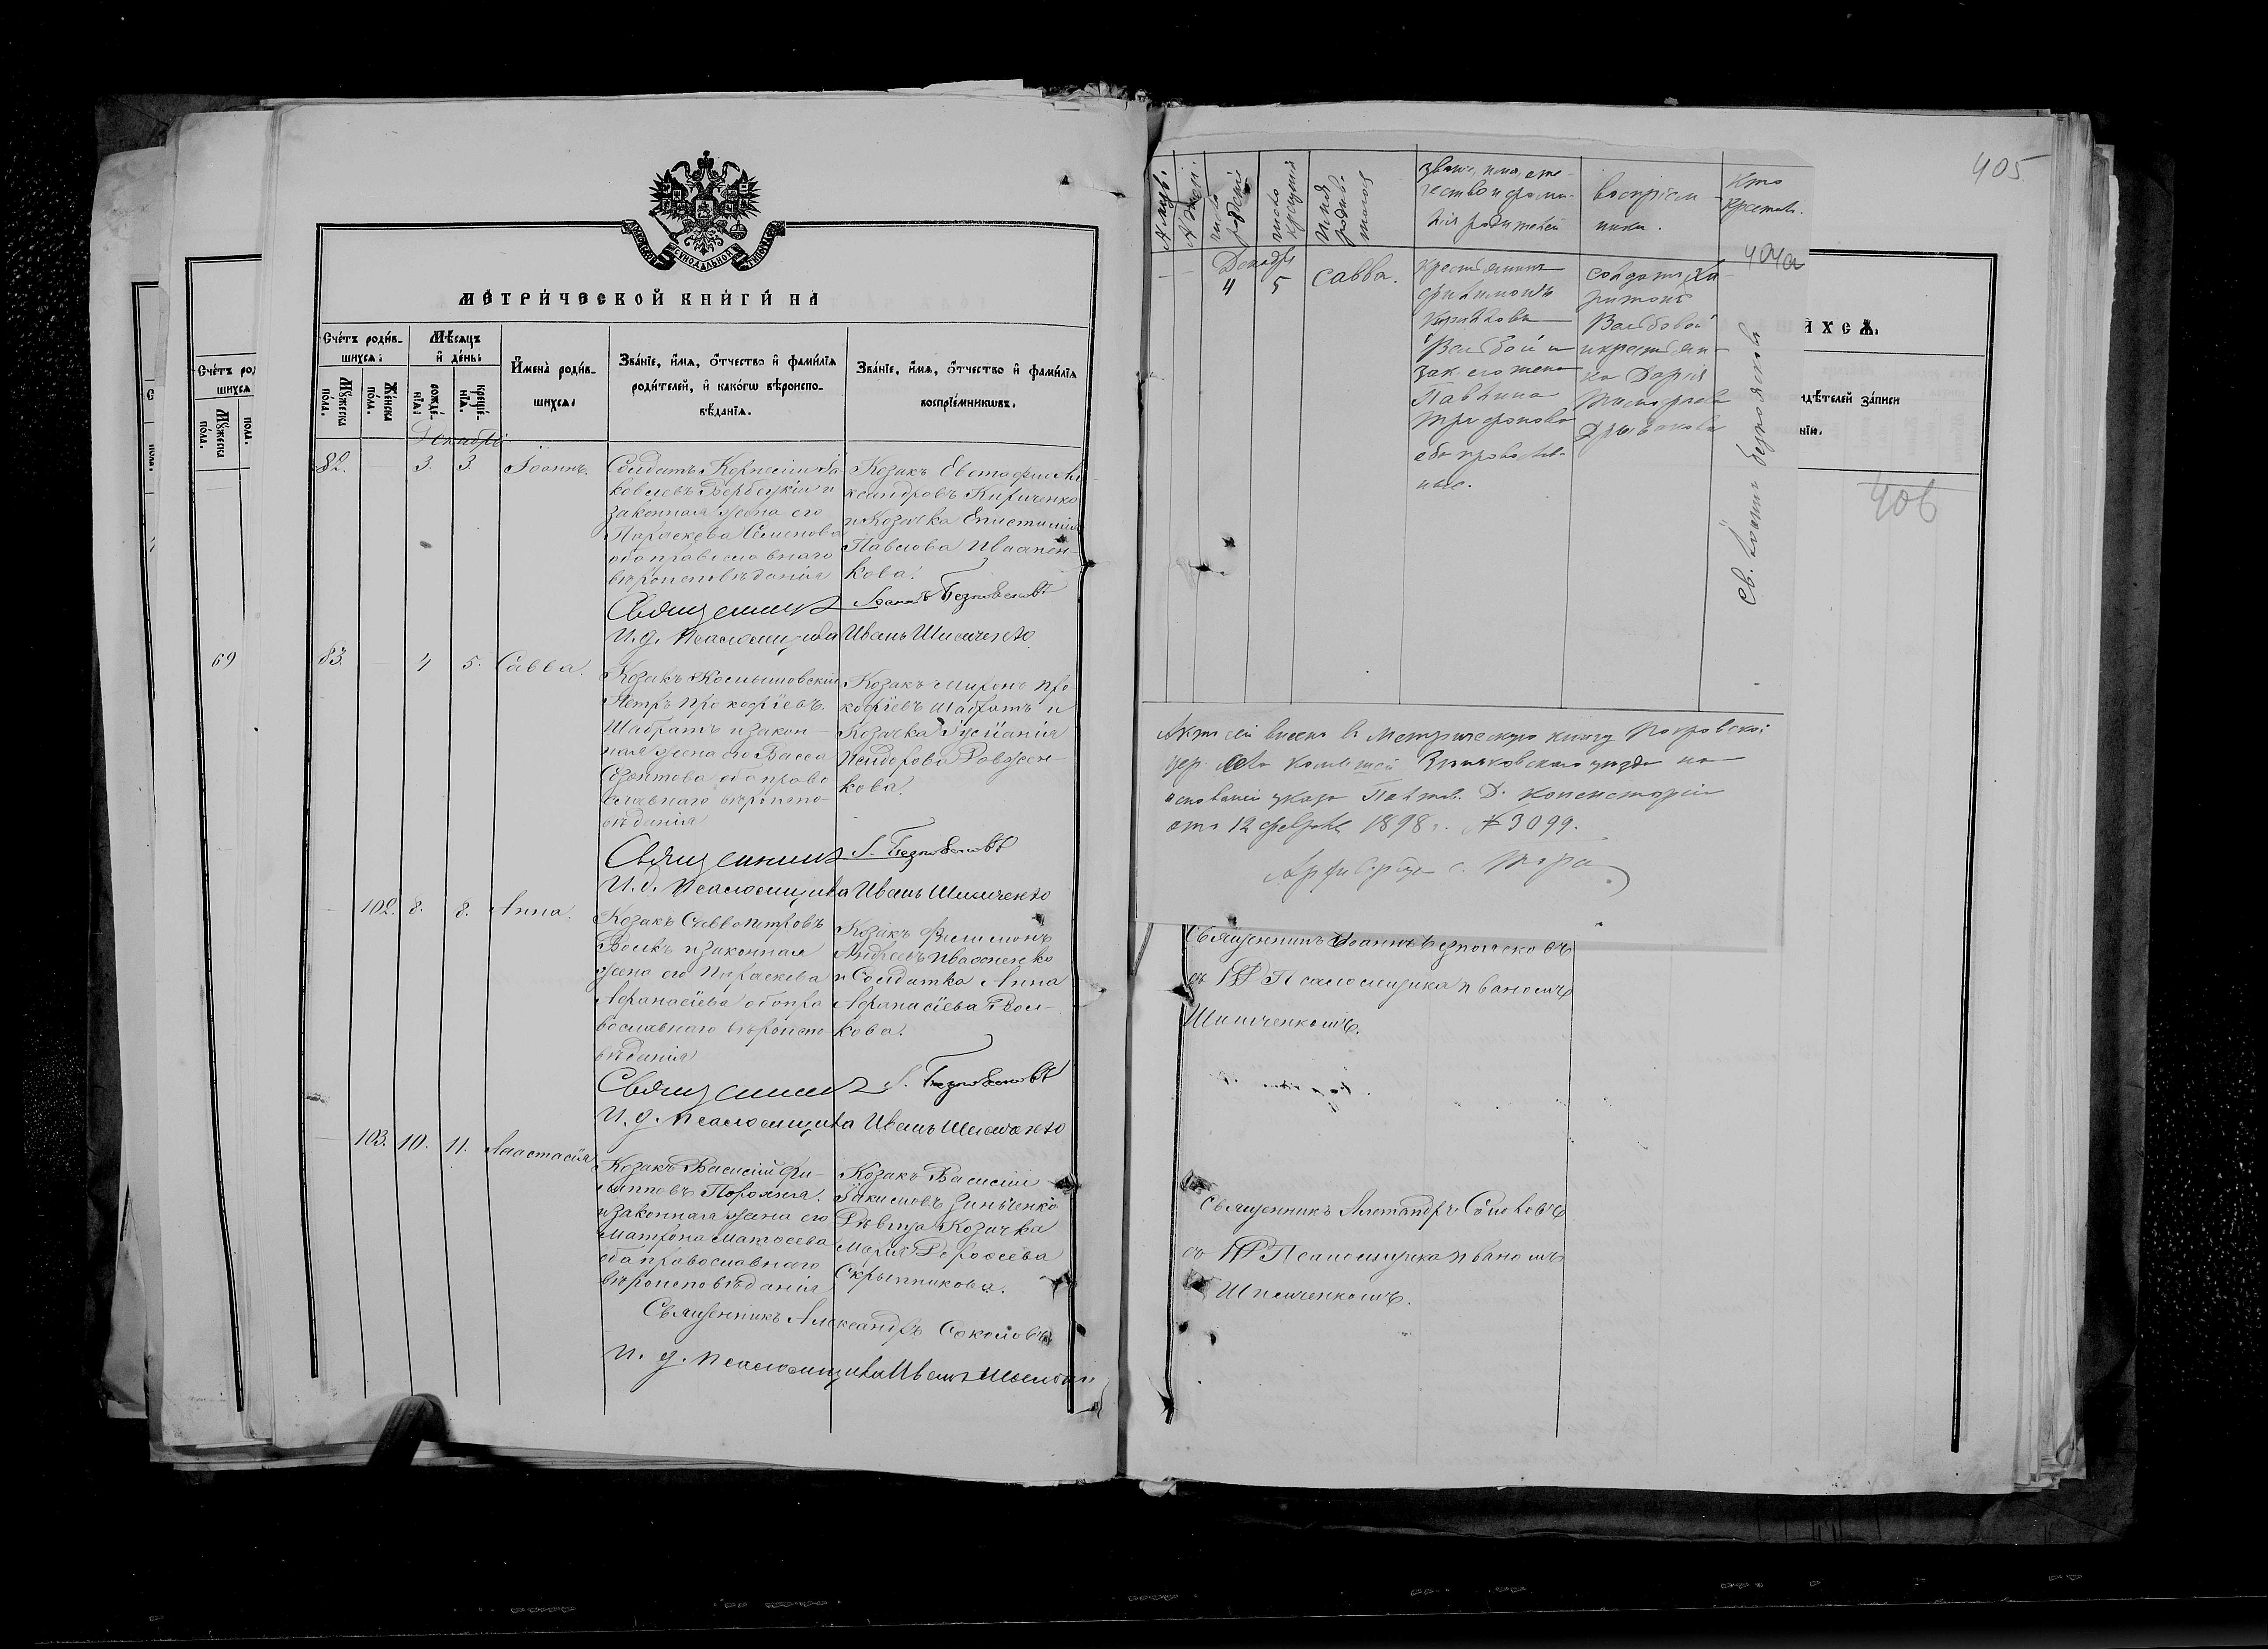 МЕТРИЧЕСКОЙ КНИГИ НА
Счетъ родив-
шихся:
Мужеска
пола.
Женска
пола.
Мѣсяцъ
и день:
рожде-
нія:
креще-
нія.
Имена родив-
шихся:
Званіе, имя, отчество и фамилія
родителей, и какогѡ вѣроиспо-
вѣданія.
Званіе, имя, отчество и фамилія
воспріемникѡвъ.
Декабрь
82. 3. 3. Іоаннъ.
Солдатъ Корнелій Іа-
ковлевъ Вербецкій и
законная жена его
Параскева Семенова
оба православнаго
вѣроисповѣданія
Козакъ Евстафій Але
ксандровъ Кириченко
и Козачка Епистимія
Павлова Иващен-
кова.
Священникъ Іоаннъ Безпоясковъ
И. д. Псаломщика Иванъ Шимченко
83. 4 5. Савва.
Козакъ
Петръ Прокофіевъ
Шабратъ и закон-
ная жена его Васса
оба право
славнаго вѣроиспо-
вѣданія
Козакъ Миронъ Про-
кофіевъ Шабратъ и
Козачка
Исидорова
кова.
Священникъ І. Безпоясковъ
И. д. Псаломщика Иванъ Шимченко
102. 8. 8. Анна.
Козакъ Савва Петровъ
Волкъ и законная
жена его Параскева
Афанасіева оба пра
вославнаго вѣроиспо-
вѣданія
Козакъ Филимонъ
Андреевъ Иващенко
и Солдатка Анна
Афанасіева Вол-
кова.
Священникъ І. Безпоясковъ
И. д. Псаломщика Иванъ Шимченко
103. 10. 11. Анастасія
Козакъ Василій Фи-
липповъ Порожня
и законная жена его
Матрона Матѳеева
оба православнаго
вѣроисповѣданія
Козакъ Василій
Зинченко
Дѣвица Козачка
Марія Дороѳеева
Скрыпникова.
Священникъ Александръ Соколовъ
И. д. Псаломщика Иванъ
Счетъ род
шихся
Мужеска
пола.
пола.
69
405
число
рожденія
число
крещенія
Имя
родив-
шагося
званіе, имя, оте-
чество и фами-
лія родителей
воспріем-
ники.
Кто
крестилъ.
404а
Декабрь
4 5 Савва.
крестьянинъ
Филимонъ
Кирилловъ
и
зак. его жена
Павлина
Трифонова
оба православ-
ные.
солдатъ Ха-
ритонъ
и крестьян-
ка Дарія
св. Іоаннъ Безпоясковъ
Актъ сей внесен в Метрическую книгу Покровской
цер. Зѣньковскаго уѣзда на
основаніи указа Полтав. Д. Консисторіи
отъ 12 февраля 1898 г. № 3099.
ИХСЯ.
идѣтелей записи
нію.
406
Священникъ Іоаннъ Безпоясковъ
съ Псаломщика Иваномъ
Шимченкомъ.
Священникъ Александръ Соколовъ
съ Псаломщика Иваномъ
Шимченкомъ.